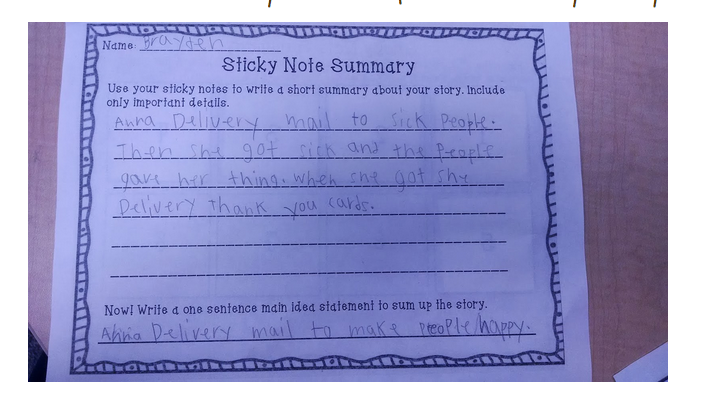 Name: Brayden
Sticky Note Summary
Use your sticky notes to write a short summary about your story. Include
only important details.
Anna Delivery mail to sick People.
Then she got sick and the People
gave her thing. when she got she
Delivery thank you cards.
Now! Write a one sentence main idea statement to sum up the story.
Anna Delivery mail to make people happy.